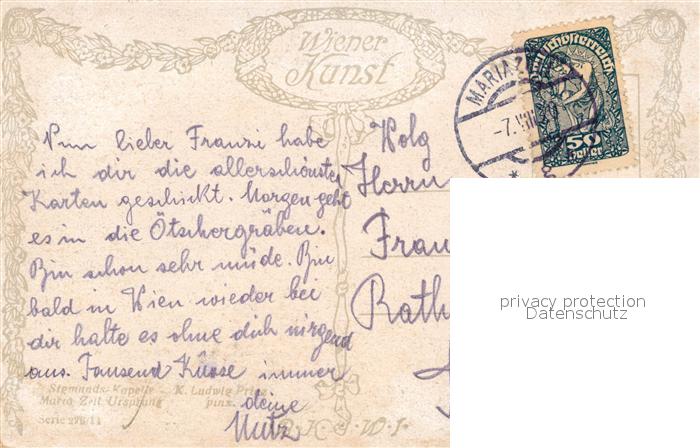 Wiener
Kunst
MARIAZ
-7.VIII.20
Deutschösterreich
50
Heller
Nun lieber Franzi habe
ich dir die allerschönsten
Karten geschickt. Morgen geht
es in die Ötschergräben.
Bin schon sehr müde. Bin
bald in Wien wieder bei
dir halte es ohne dich nirgend
aus. Tausend Küsse immer
deine
Mutz
Herrn
Fran
Rath
privacy protection
Datenschutz
Stegmunds-Kapelle K. Ludwig Prinz
Maria Zell Ursprung pinx.
Serie 278/11
B.K.W.I.